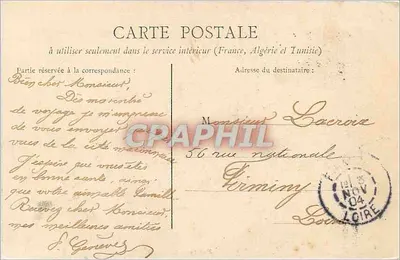 CARTE POSTALE
à utiliser seulement dans le service intérieur (France, Algérie et Tunisie)
Partie réservée à la correspondance :
Adresse du destinataire :
Bien cher Monsieur,
Dès mon
de voyage je m'empresse
de vous envoyer
vues de la cité
J'espère que vous êtes
en bonne santé, ainsi
que votre aimable famille
Recevez cher Monsieur,
mes meilleures amitiés
Monsieur Lacroix
56 rue nationale
Firminy
Loire
NOV
04
LOIRE
CPAPHIL